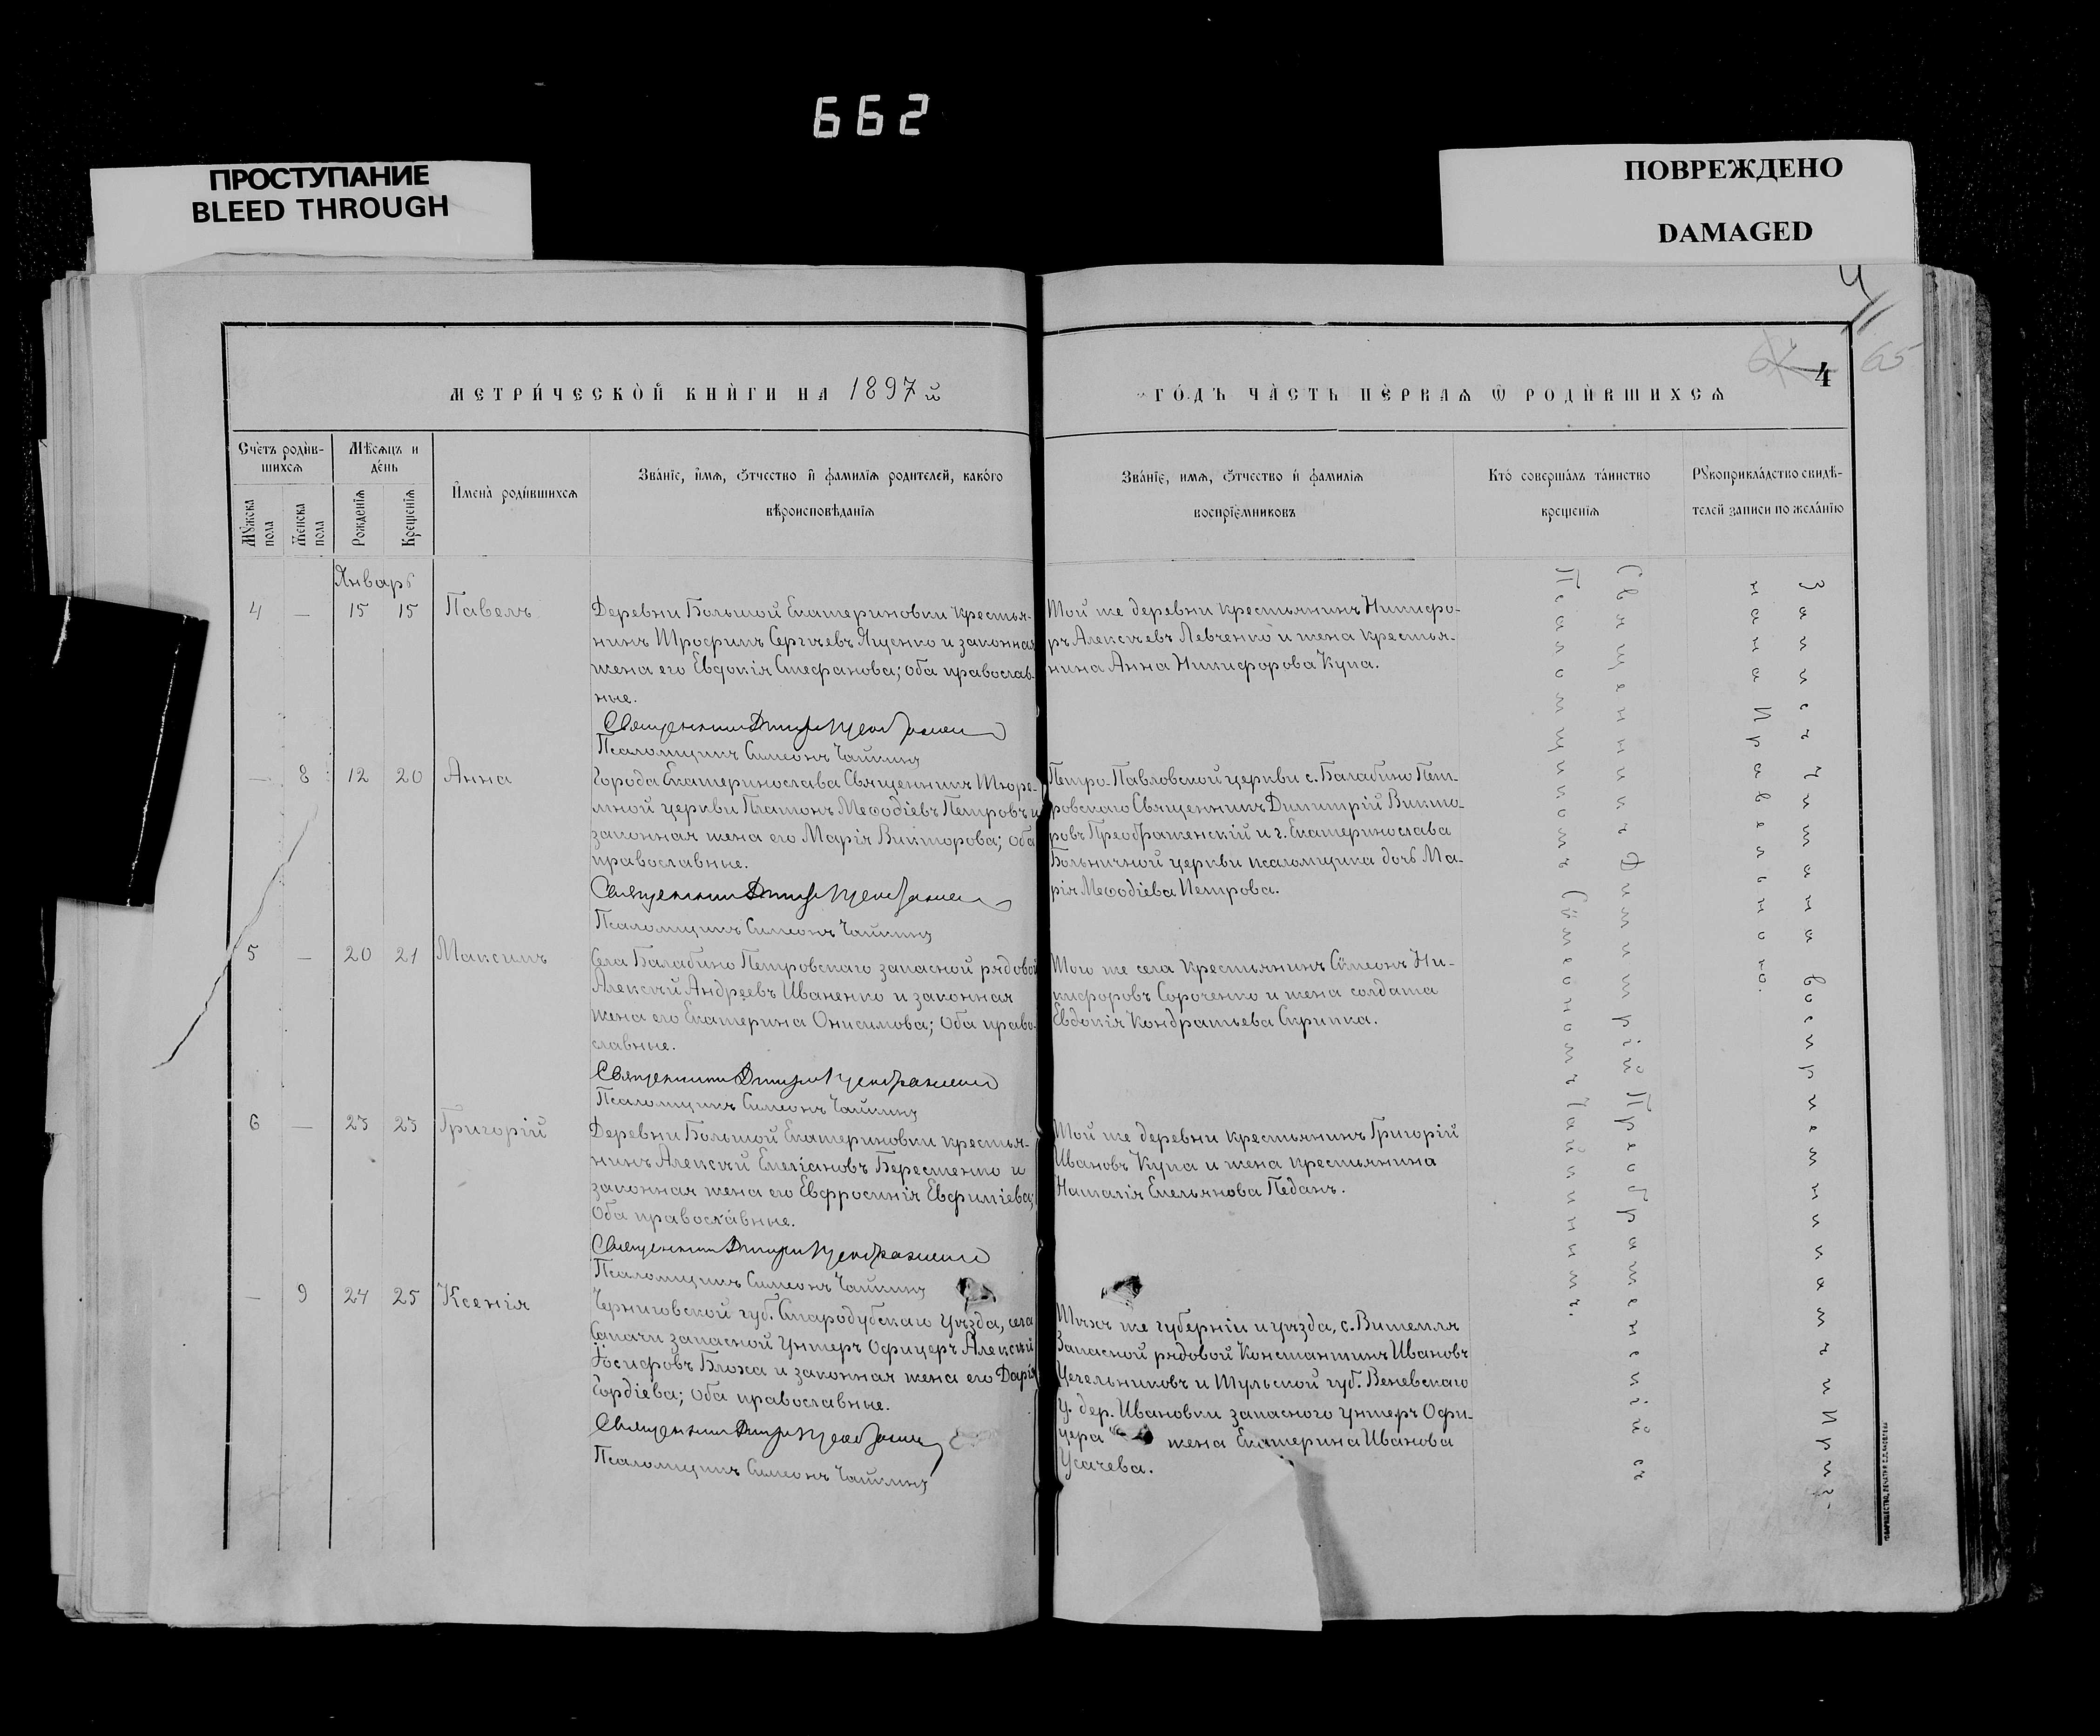 662
ПРОСТУПАНИЕ
BLEED THROUGH
ПОВРЕЖДЕНО
DAMAGED
4
65
4
МЕТРИ́ЧЕСКОЙ КНИ́ГИ НА 1897 й
ГО́ДЪ ЧА́СТЬ ПЕ́РВАѦ Ѡ РОДИ́ВШИХСѦ
Сче́тъ роди́в-
шихсѧ
Мѣ́сѧцъ и
де́нь
Мꙋ́жска
пола
Женска
пола
Рожденїѧ
Крещенїѧ
И҆мена̀ роди́вшихсѧ
Зва́нїе, и҆́мѧ, ѻ҆́тчество и҆ фамилїѧ родителей, како́гѡ
вѣроисповѣ́данїѧ
Зва́нїе, имѧ, ѻ҆́тчество и҆ фамилїѧ
воспрїе́мниковъ
Кто̀ соверша́лъ та́инство
крещенїѧ
Рꙋкоприкла́дство свидѣ́-
телей записи по жела́нїю
Январь
4 — 15 15 Павелъ
Деревни Большой Екатериновки крестья-
нинъ Трофимъ Сергѣевъ Ященко и законная
жена его Евдокія Стефанова; оба православ-
ные.
Священникъ Димитрій Преображенскій
Псаломщикъ Симеонъ Чайкинъ
Той же деревни крестьянинъ Никифо-
ръ Алексѣевъ Левченко и жена крестья-
нина Анна Никифорова Купа.
— 8 12 20 Анна
Города Екатеринослава Священникъ Тюре-
мной церкви Платонъ Меѳодіевъ Петровъ и
законная жена его Марія Викторова; оба
православные.
Священникъ Димитрій Преображенскій
Псаломщикъ Симеонъ Чайкинъ
Петро-Павловской церкви с. Балабино Пет-
ровского Священникъ Димитрій Викто-
ровъ Преображенскій и г. Екатеринослава
Больничной церкви псаломщика дочь Ма-
рія Меѳодіева Петрова.
5 — 20 21 Максимъ
Села Балабино Петровскаго запасной рядовой
Алексѣй Андреевъ Иваненко и законная
жена его Екатерина Онисимова; оба право-
славные.
Священникъ Димитрій Преображенскій
Псаломщикъ Симеонъ Чайкинъ
Того же села крестьянинъ Сѵмеонъ Ни-
кифоровъ Сороченко и жена солдата
Евдокія Кондратьева Скрипка.
6 — 23 23 Григорій
Деревни Большой Екатериновки крестья-
нинъ Алексѣй Емеліановъ Берестенко и
законная жена его Евфросинія Евфиміева;
Оба православные.
Священникъ Димитрій Преображенскій
Псаломщикъ Симеонъ Чайкинъ
Той же деревни крестьянинъ Григорій
Ивановъ Купа и жена крестьянина
Наталія Емельянова Педанъ.
— 9 24 25 Ксенія
Черниговской губ. Стародубскаго уѣзда, села
Сапачи запасной Унтеръ Офицеръ Алексѣй
Іосифовъ Блоха и законная жена его Дарія
Гордіева; оба православные.
Священникъ Димитрій Преображенскій
Псаломщикъ Симеонъ Чайкинъ
Тѣхъ же губерніи и уѣзда, с. Витемля
Запасной рядовой Константинъ Ивановъ
и Тульской губ. Веневскаго
У. дер. Ивановки запасного Унтеръ Офи-
цера жена Екатерина Иванова
Усачева.
Священникъ Димитрій Преображенскій съ
Псаломщикомъ Сѵмеономъ Чайкинымъ.
Запись читана воспріемникамъ и Приз-
нана Правильною.